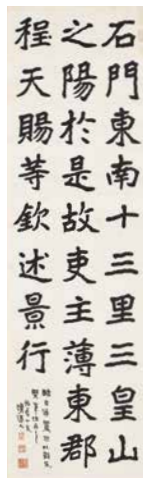 石門東南十三里三皇山
之陽於是故吏主薄東郡
程天賜等欽述景行